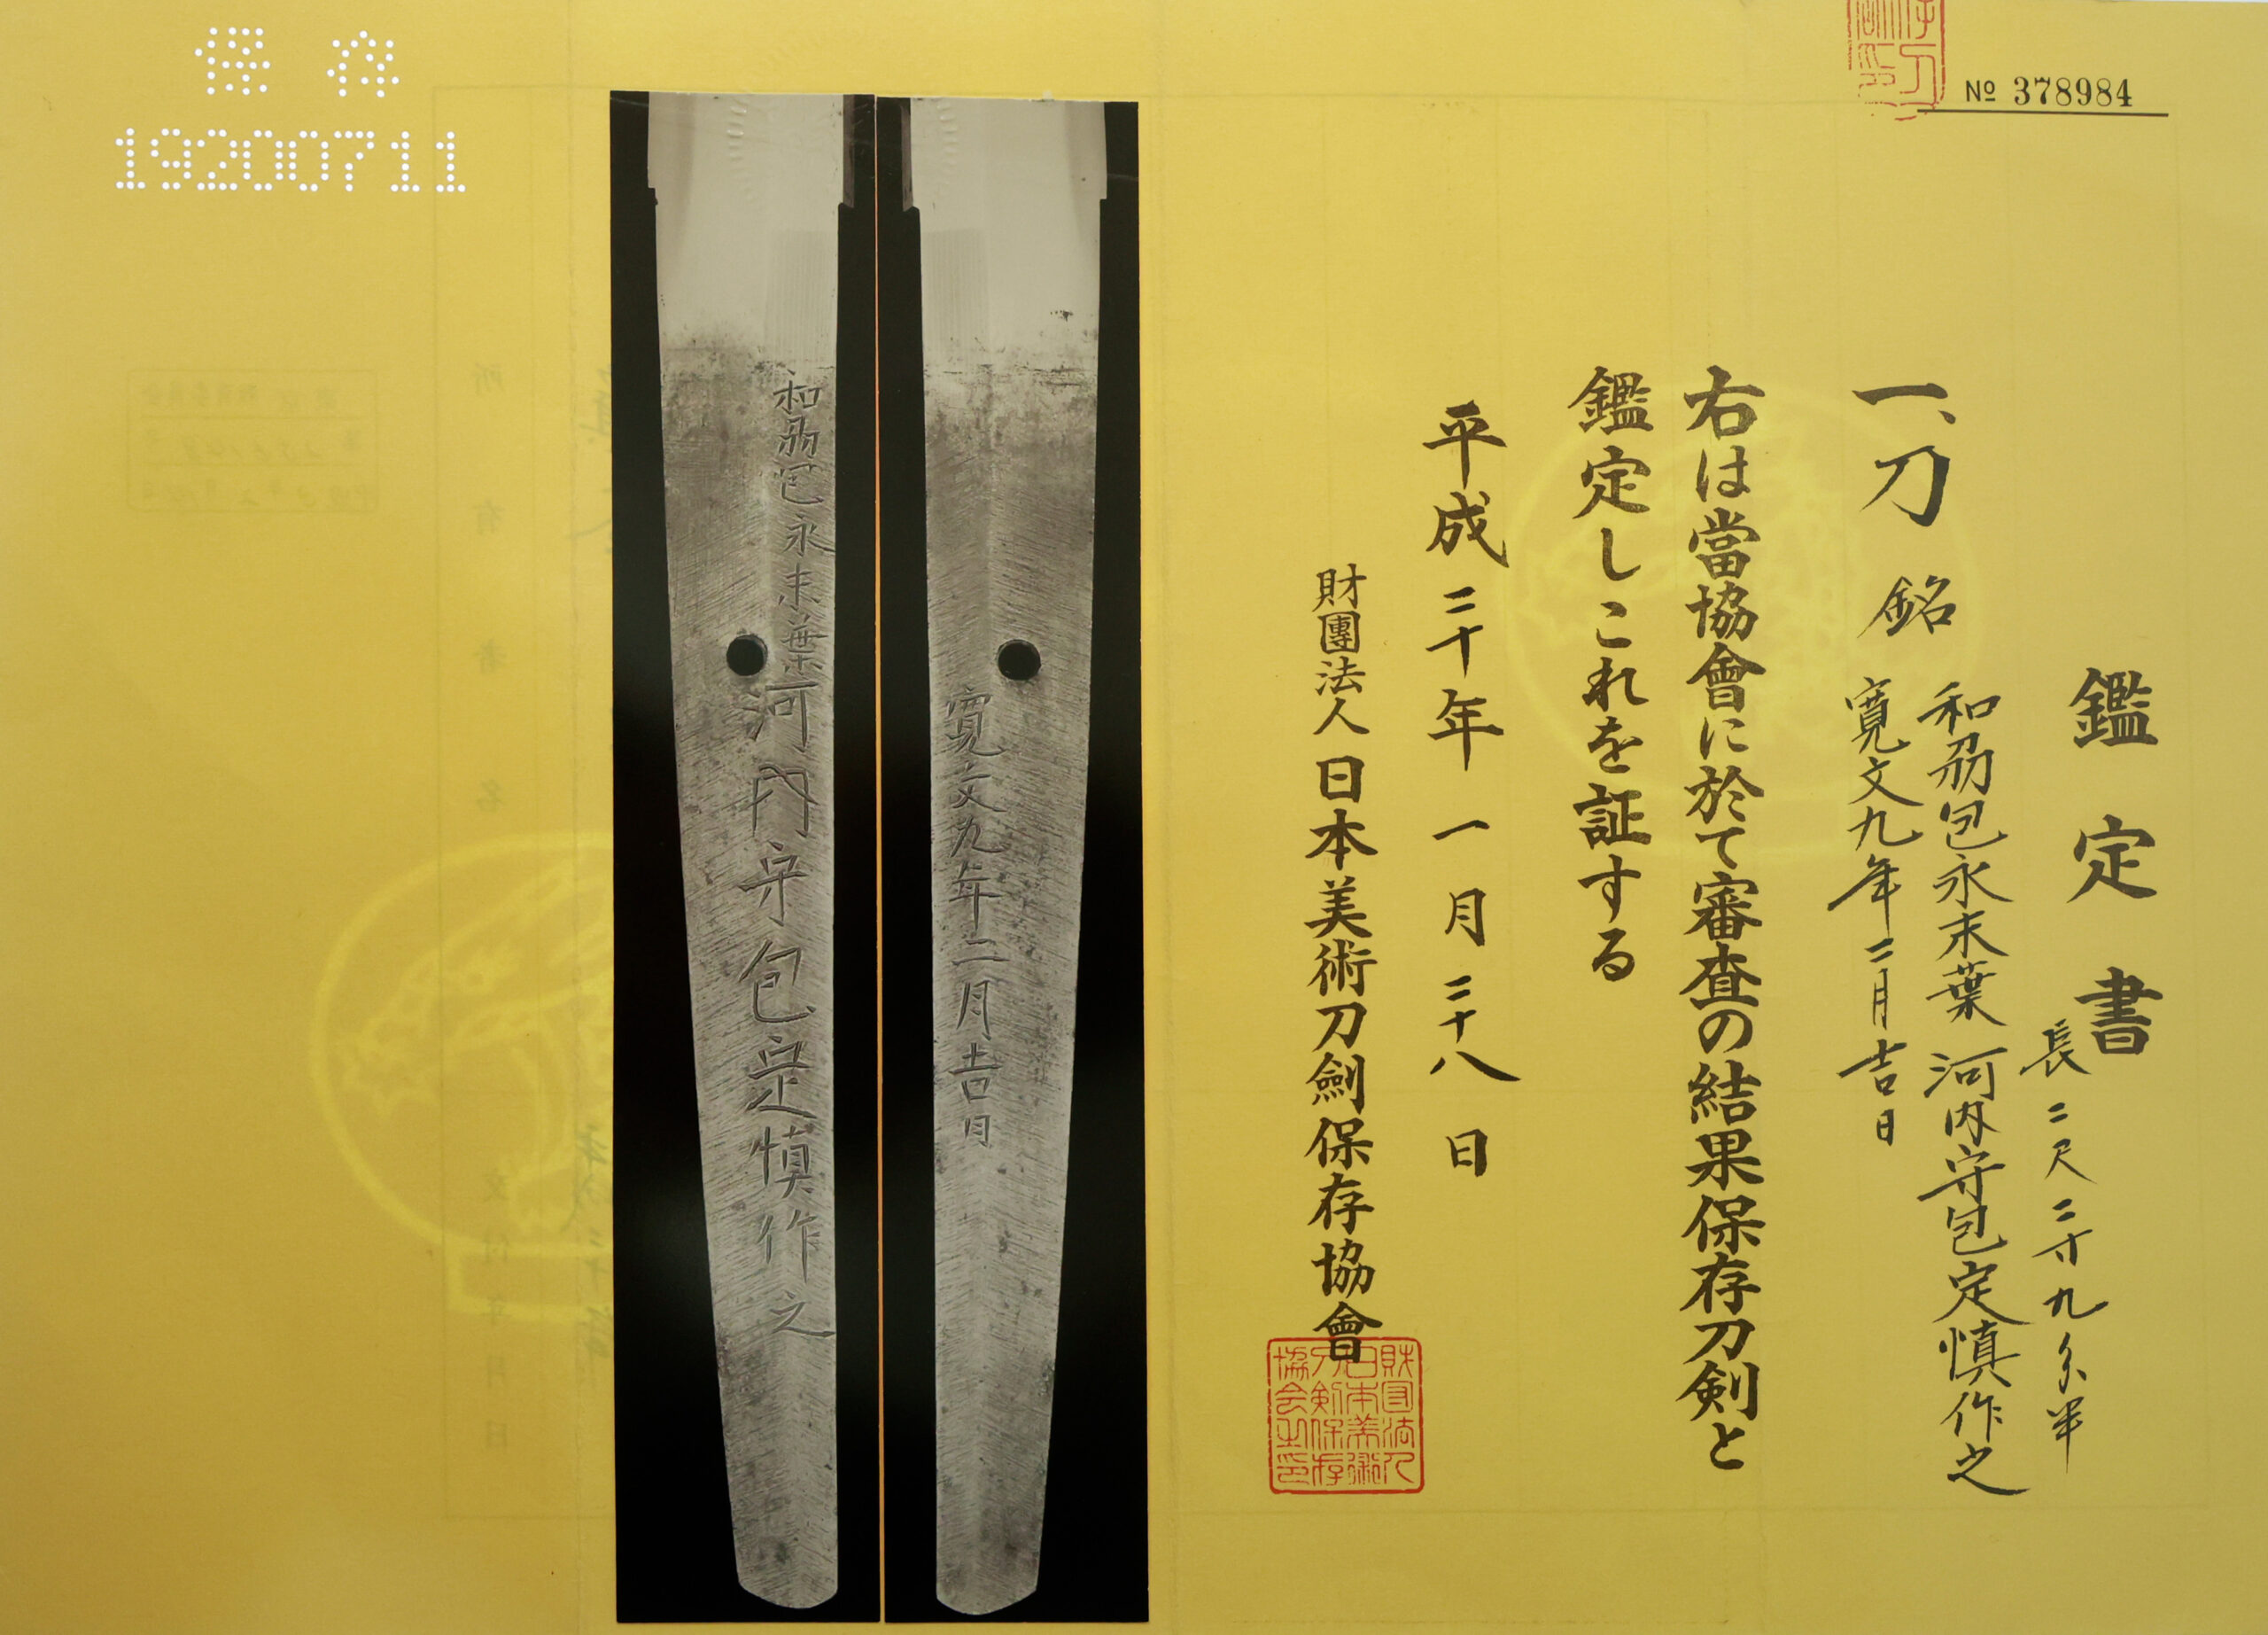 № 378984
鑑定書
長二尺二寸九分半
一、刀 銘 和刕包永末葉 河内守包定慎作之
寛文九年二月吉日
右は當協會に於て審査の結果保存刀剣と
鑑定しこれを証する
平成二十年一月二十八日
財團法人 日本美術刀劍保存協會
財団法人
日本美術
刀剣保存
協会之印
寛文九年二月吉日
和刕包永末葉河内守包定慎作之
保存
19200711